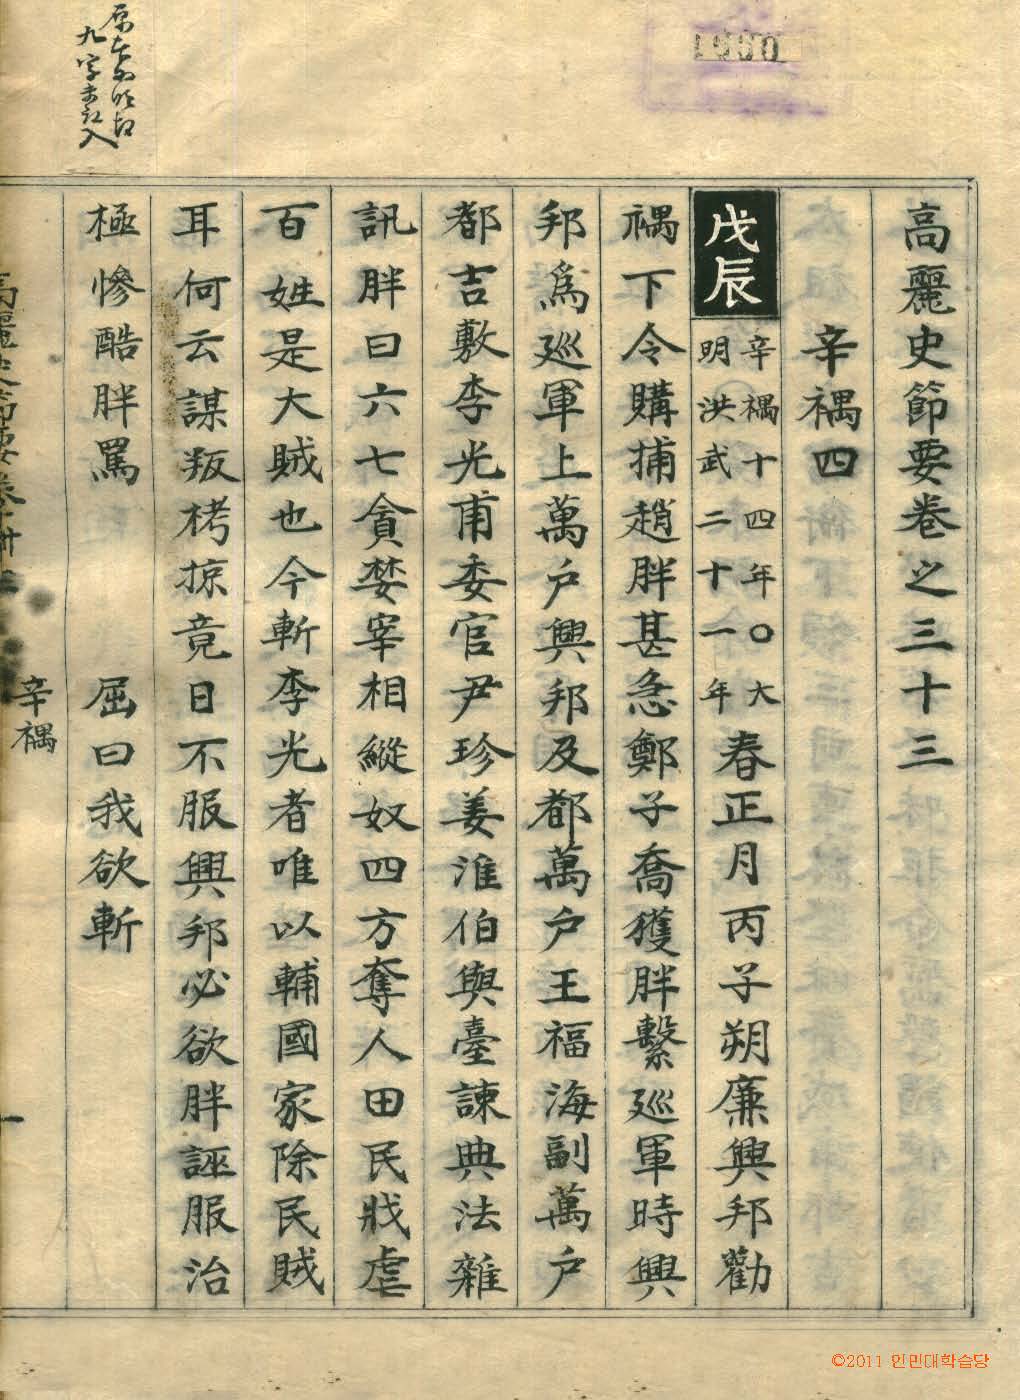 高麗史節要卷之三十三
辛禑四
戊辰
辛禑十四年〇大
明洪武二十一年
春正月丙子朔廉興邦勸
禑下令購捕趙胖甚急鄭子喬獲胖繫巡軍時興
邦爲巡軍上萬戶興邦及都萬戶王福海副萬戶
都吉敷李光甫委官尹珍姜淮伯與臺諫典法雜
訊胖曰六七貪婪宰相縱奴四方奪人田民戕虐
百姓是大賊也今斬李光者唯以輔國家除民賊
耳何云謀叛栲掠竟日不服興邦必欲胖誣服治
極慘酷胖罵 屈曰我欲斬
辛禑
一
九字未記入
©2011 인민대학습당